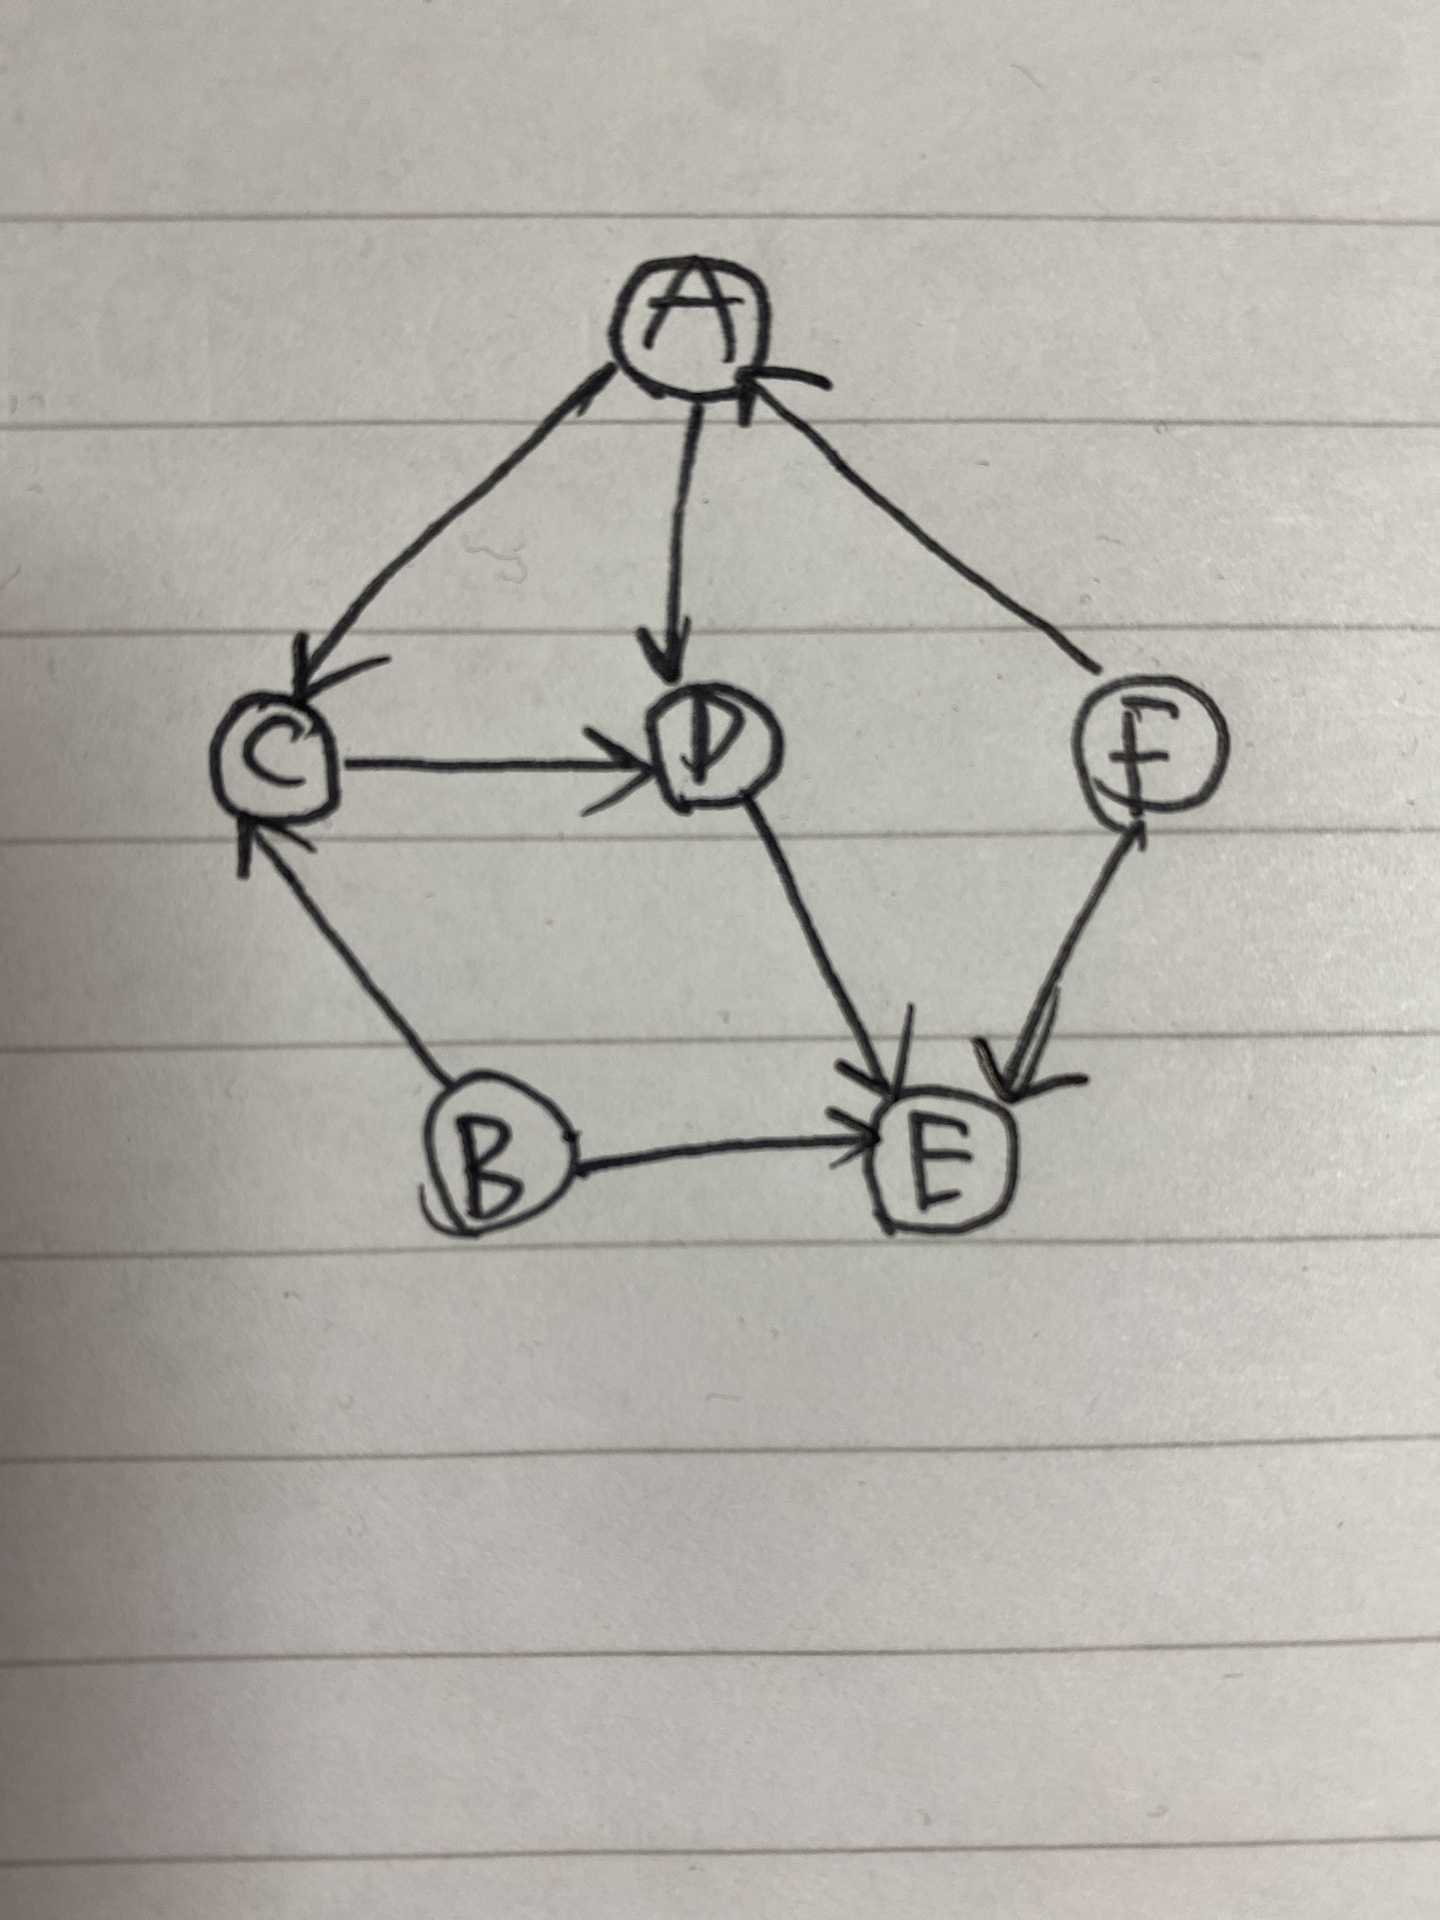 A
C D F
B E